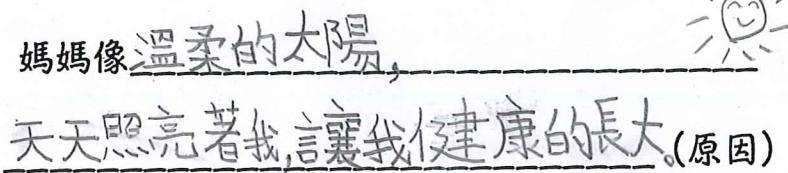 媽媽像溫柔的太陽,
天天照亮著我,讓我健康的長大。(原因)